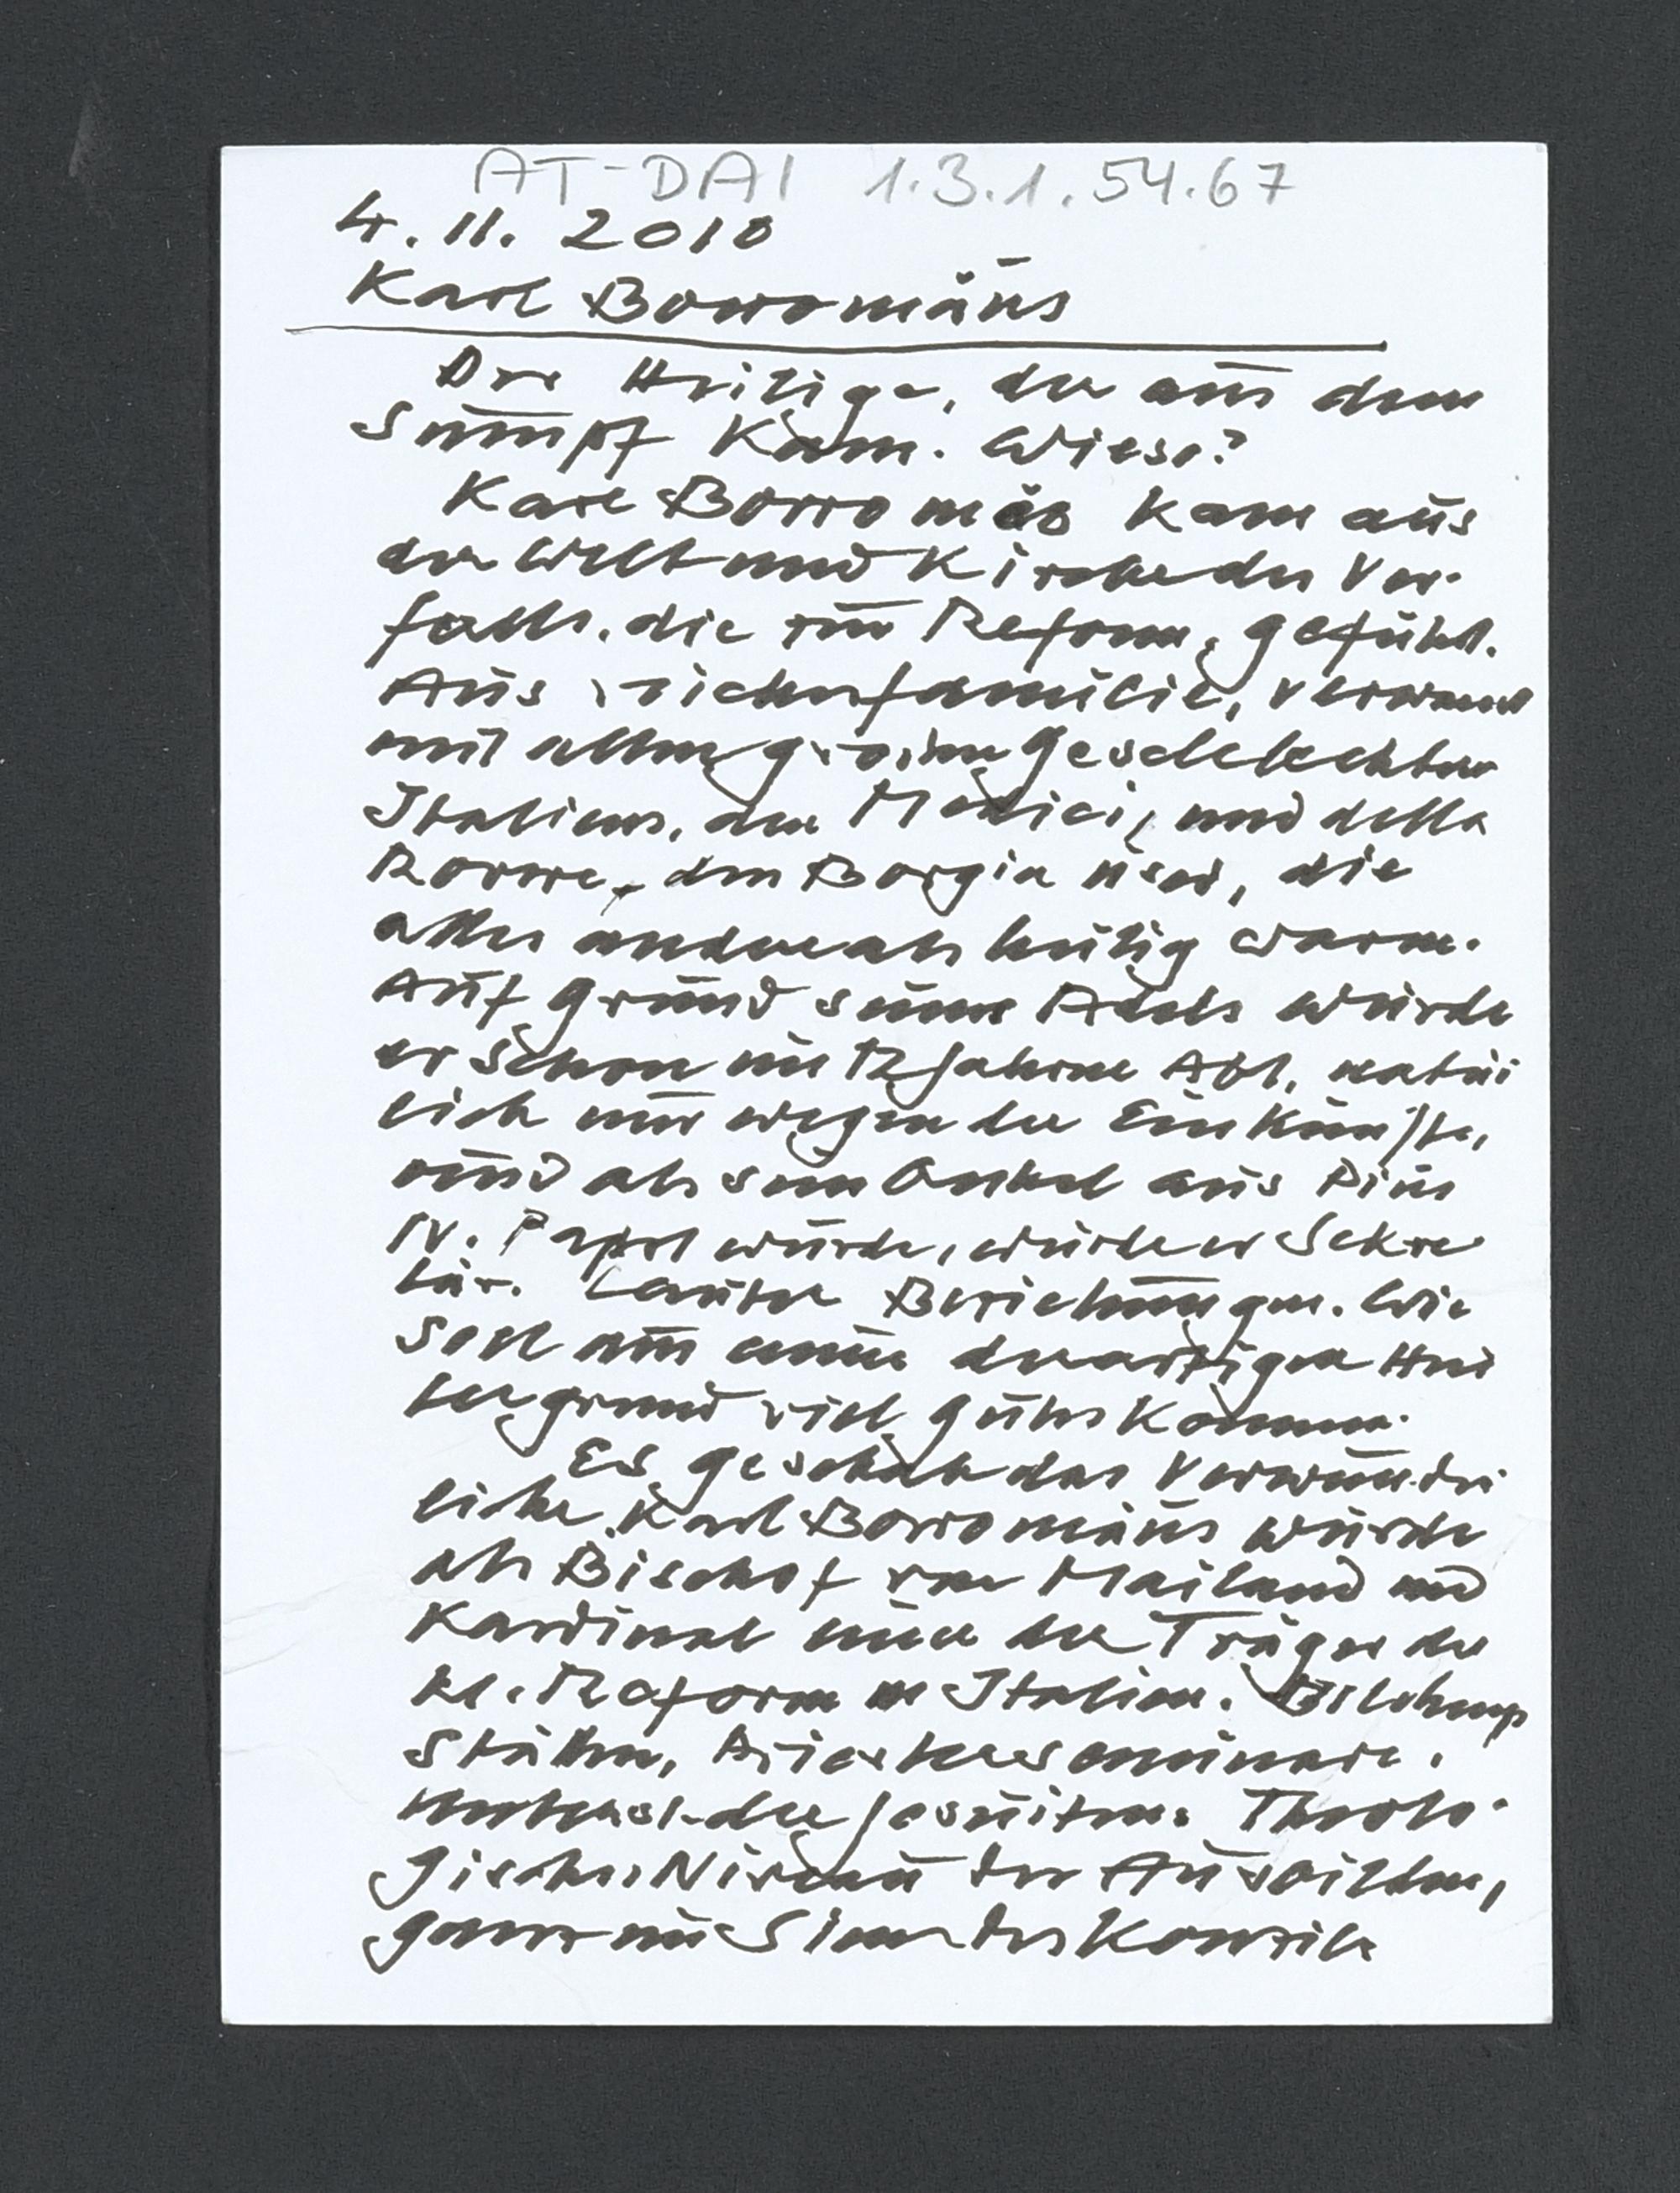 AT-DAI 1.3.1.54.67
4. 11. 2010
Karl Borromäus
Der Heilige, der aus dem
Sumpf kam. Wieso?
Karl Borromäo kam aus
der Welt und Kirche des Ver-
falls, die zur Reform, geführt.
Aus reicher familie, verwand
mit allen großen Geschlechtern
Italiens, den Medici, und della
Rovere, den Borgia usw, die
alles andere als heilig waren.
Auf Grund seines Adels wurde
er schon mit 12 Jahren Abt, natür
lich nur wegen der Einkünfte,
und als sein Onkel aus Pius
IV. Papst wurde, wurde er Sekre
tär. Lauter Beziehungen. Wie
soll aus einem derartigen Hin
tergrund viel gutes kommen.
Es geschah das Verwunder
liche, Karl Borromäus wurde
als Bischof von Mailand und
Kardinal einer der Träger der
kl. Reform in Italien. Bildungs
stätten, Priesterseminare,
der Jesuiten. Theolo-
gisches Niveau der Ausbildung,
ganz im Sinne des Konzils